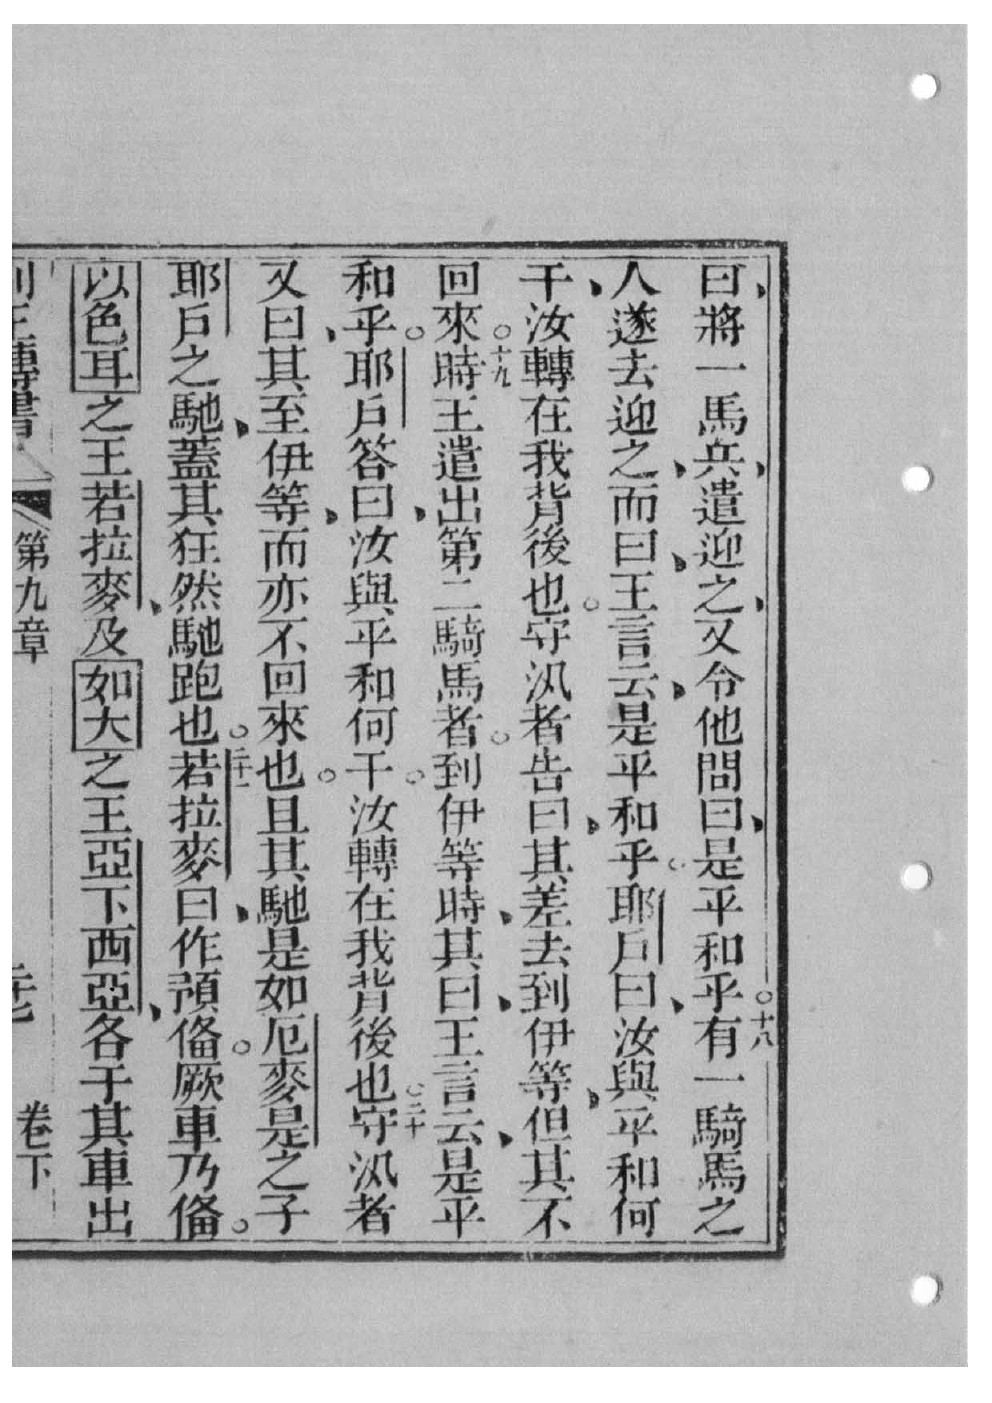 曰將一馬兵遣迎之又令他問曰是平和乎○十八有一騎馬之
人遂去迎之而曰王言云是平和乎耶戶曰汝與平和何
干汝轉在我背後也守汛者告曰其差去到伊等但其不
回來○十九時王遣出第二騎馬者到伊等時其曰王言云是平
和乎耶戶答曰汝與平和何干汝轉在我背後也○二十守汛者
又曰其至伊等而亦不回來也且其馳是如厄麥是之子
耶戶之馳蓋其狂然馳跑也○二十一若拉麥曰作預偹厥車乃偹
以色耳之王若拉麥及如大之王亞下西亞各于其車出
列王傳書 第九章 卷下